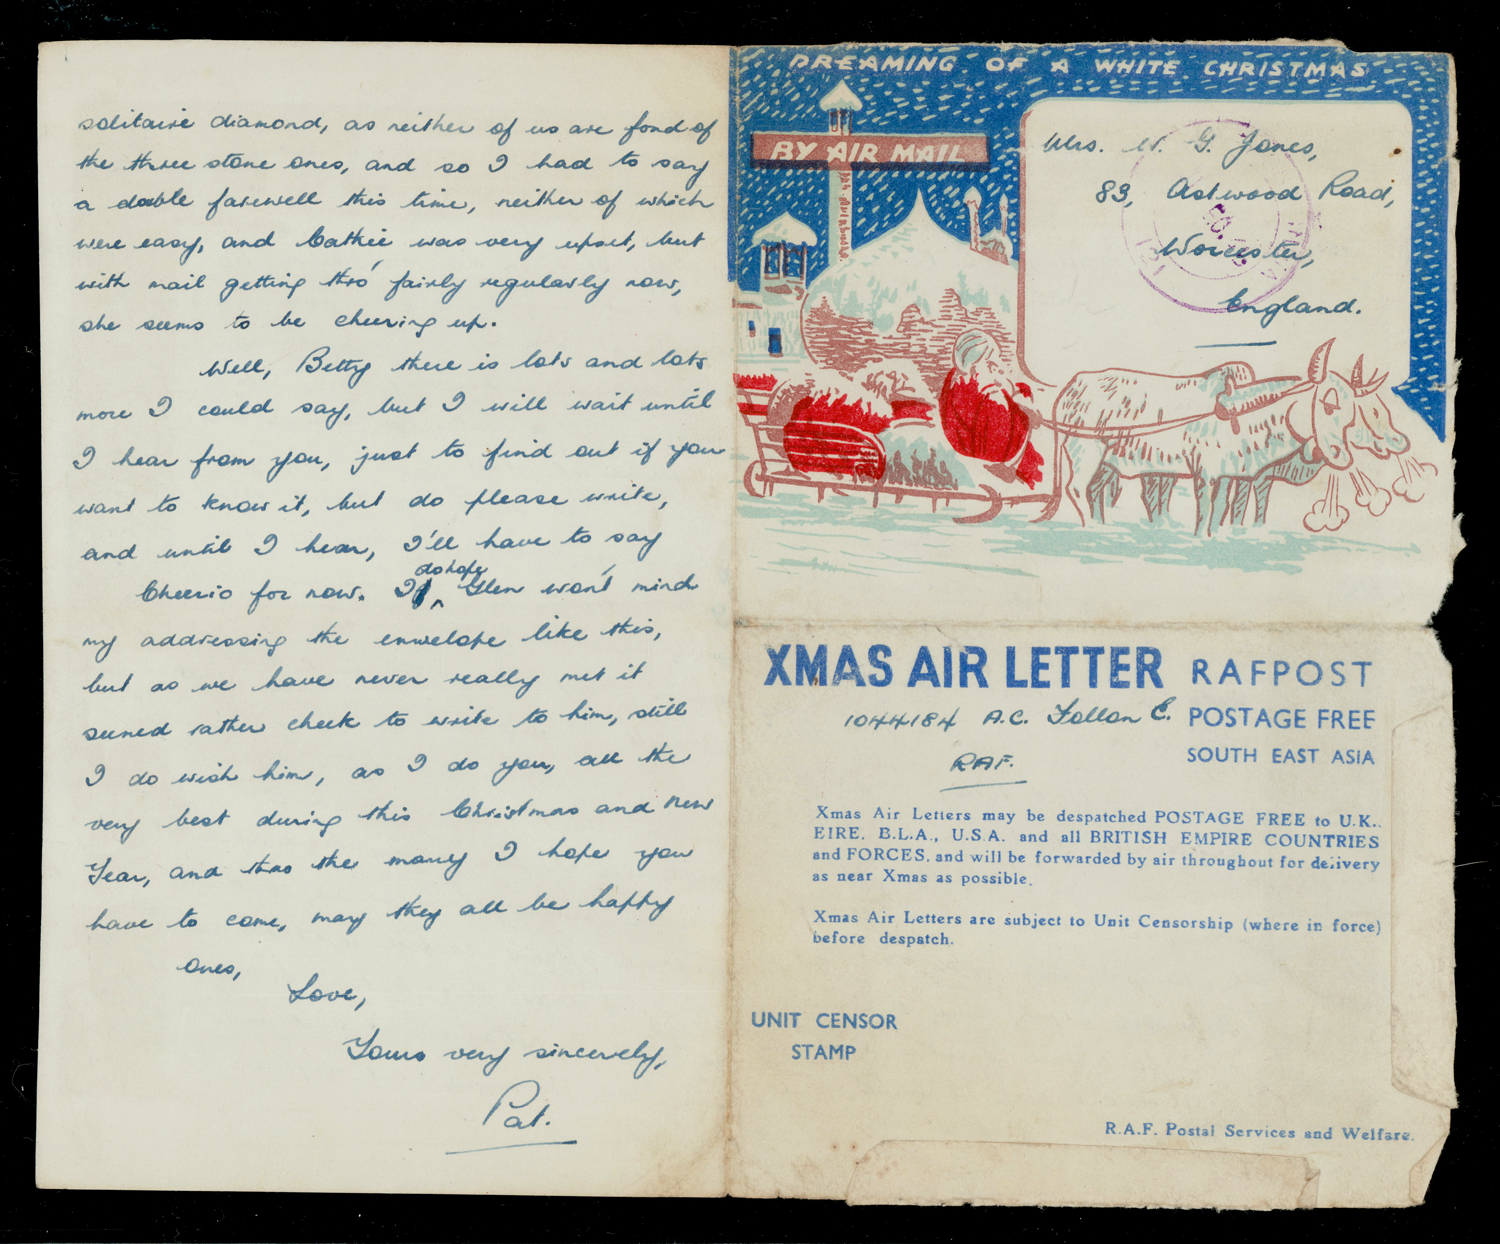 solitaire diamond, as neither of us are fond of
the three stone ones, and so I had to say
a double farewell this time, neither of which
were easy, and Cathie was very upset, but
with mail getting thro' fairly regularly now,
she seems to be cheering up.
Well, Betty there is lots and lots
more I could say, but I will wait until
I hear from you, just to find out if you
want to know it, but do please write,
and until I hear, I'll have to say
Cheerio for now. I do hope Glen won't mind
my addressing the envelope like this,
but as we have never really met it
seemed rather cheek to write to him, still
I do wish him, as I do you, all the
very best during this Christmas and New
Year, and thro the many I hope you
have to come, may they all be happy
ones,
Love,
Yours very sincerely,
Pat.
DREAMING OF A WHITE CHRISTMAS
BY AIR MAIL
Mrs. W. G. Jones,
83, Astwood Road,
Worcester,
England.
XMAS AIR LETTER RAFPOST
1044184 A.C. Fallon E. POSTAGE FREE
RAF. SOUTH EAST ASIA
Xmas Air Letters may be despatched POSTAGE FREE to U.K.,
EIRE, B.L.A., U.S.A. and all BRITISH EMPIRE COUNTRIES
and FORCES, and will be forwarded by air throughout for delivery
as near Xmas as possible.
Xmas Air Letters are subject to Unit Censorship (where in force)
before despatch.
UNIT CENSOR
STAMP
R.A.F. Postal Services and Welfare.